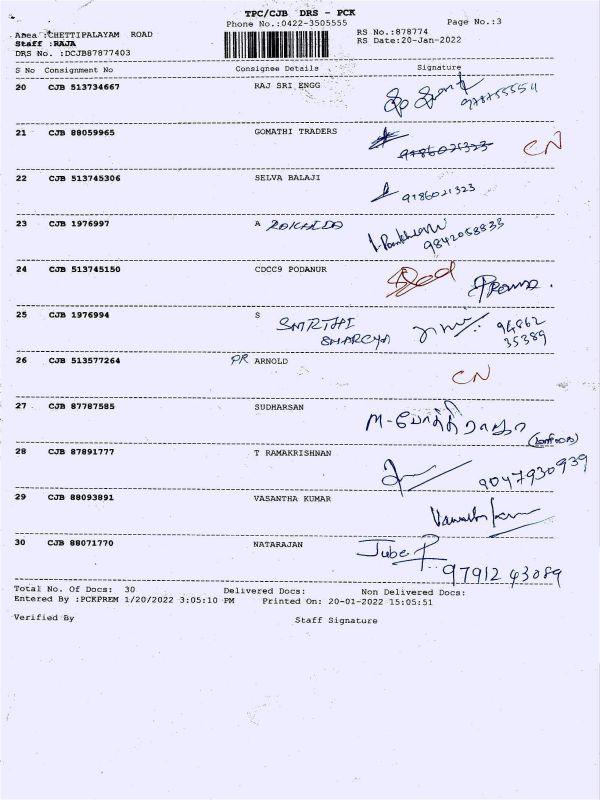 TPC/CJB DRS - PCK
Phone No.:0422-3505555
Page No.:3
Area :CHETTIPALAYAM ROAD
RS No.:878774
Staff :RAJA
RS Date:20-Jan-2022
DRS No. :DCJB87877403
S No Consignment No Consignee Details Signature
20 CJB 513734667 RAJ SRI ENGG
21 CJB 88059965 GOMATHI TRADERS 9786021323 CN
22 CJB 513745306 SELVA BALAJI 9786021323
23 CJB 1976997 A
9842058833
24 CJB 513745150 CDCC9 PODANUR Prema.
25 CJB 1976994 S SMRTHI 94862
35389
26 CJB 513577264 PR ARNOLD CN
27 CJB 87787585 SUDHARSAN
28 CJB 87891777 T RAMAKRISHNAN 9047930939
29 CJB 88093891 VASANTHA KUMAR
30 CJB 88071770 NATARAJAN Jube P
97912 43089
Total No. Of Docs: 30 Delivered Docs: Non Delivered Docs:
Entered By :PCKPREM 1/20/2022 3:05:10 PM Printed On: 20-01-2022 15:05:51
Verified By Staff Signature